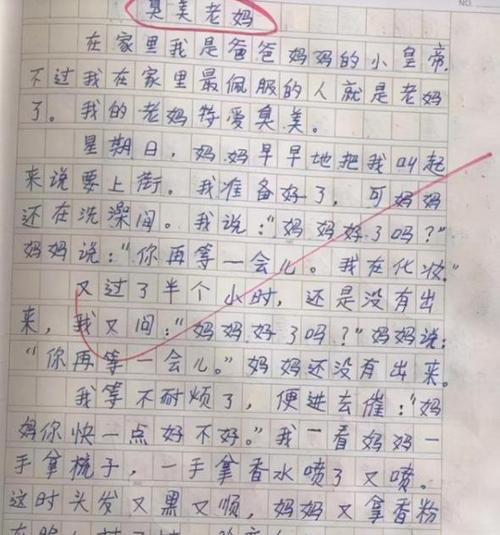 臭美老妈
在家里我是爸爸妈妈的小皇帝,
不过我在家里最佩服的人就是老妈
了。我的老妈特爱臭美。
星期日，妈妈早早地把我叫起
来说要上街。我准备好了，可妈妈
还在洗澡间。我说：“妈妈好了吗？”
妈妈说：“你再等一会儿。我在化妆”
又过了半个小时，还是没有出
来，我又问：“妈妈好了吗？”妈妈说：
“你再等一会儿。”妈妈还没有出来。
我等不耐烦了，便进去催：“妈
妈你快一点好不好。”我一看妈妈一
手拿梳子，一手拿香水喷了又喷。
这时头发又黑又顺，妈妈又拿香粉
NO.